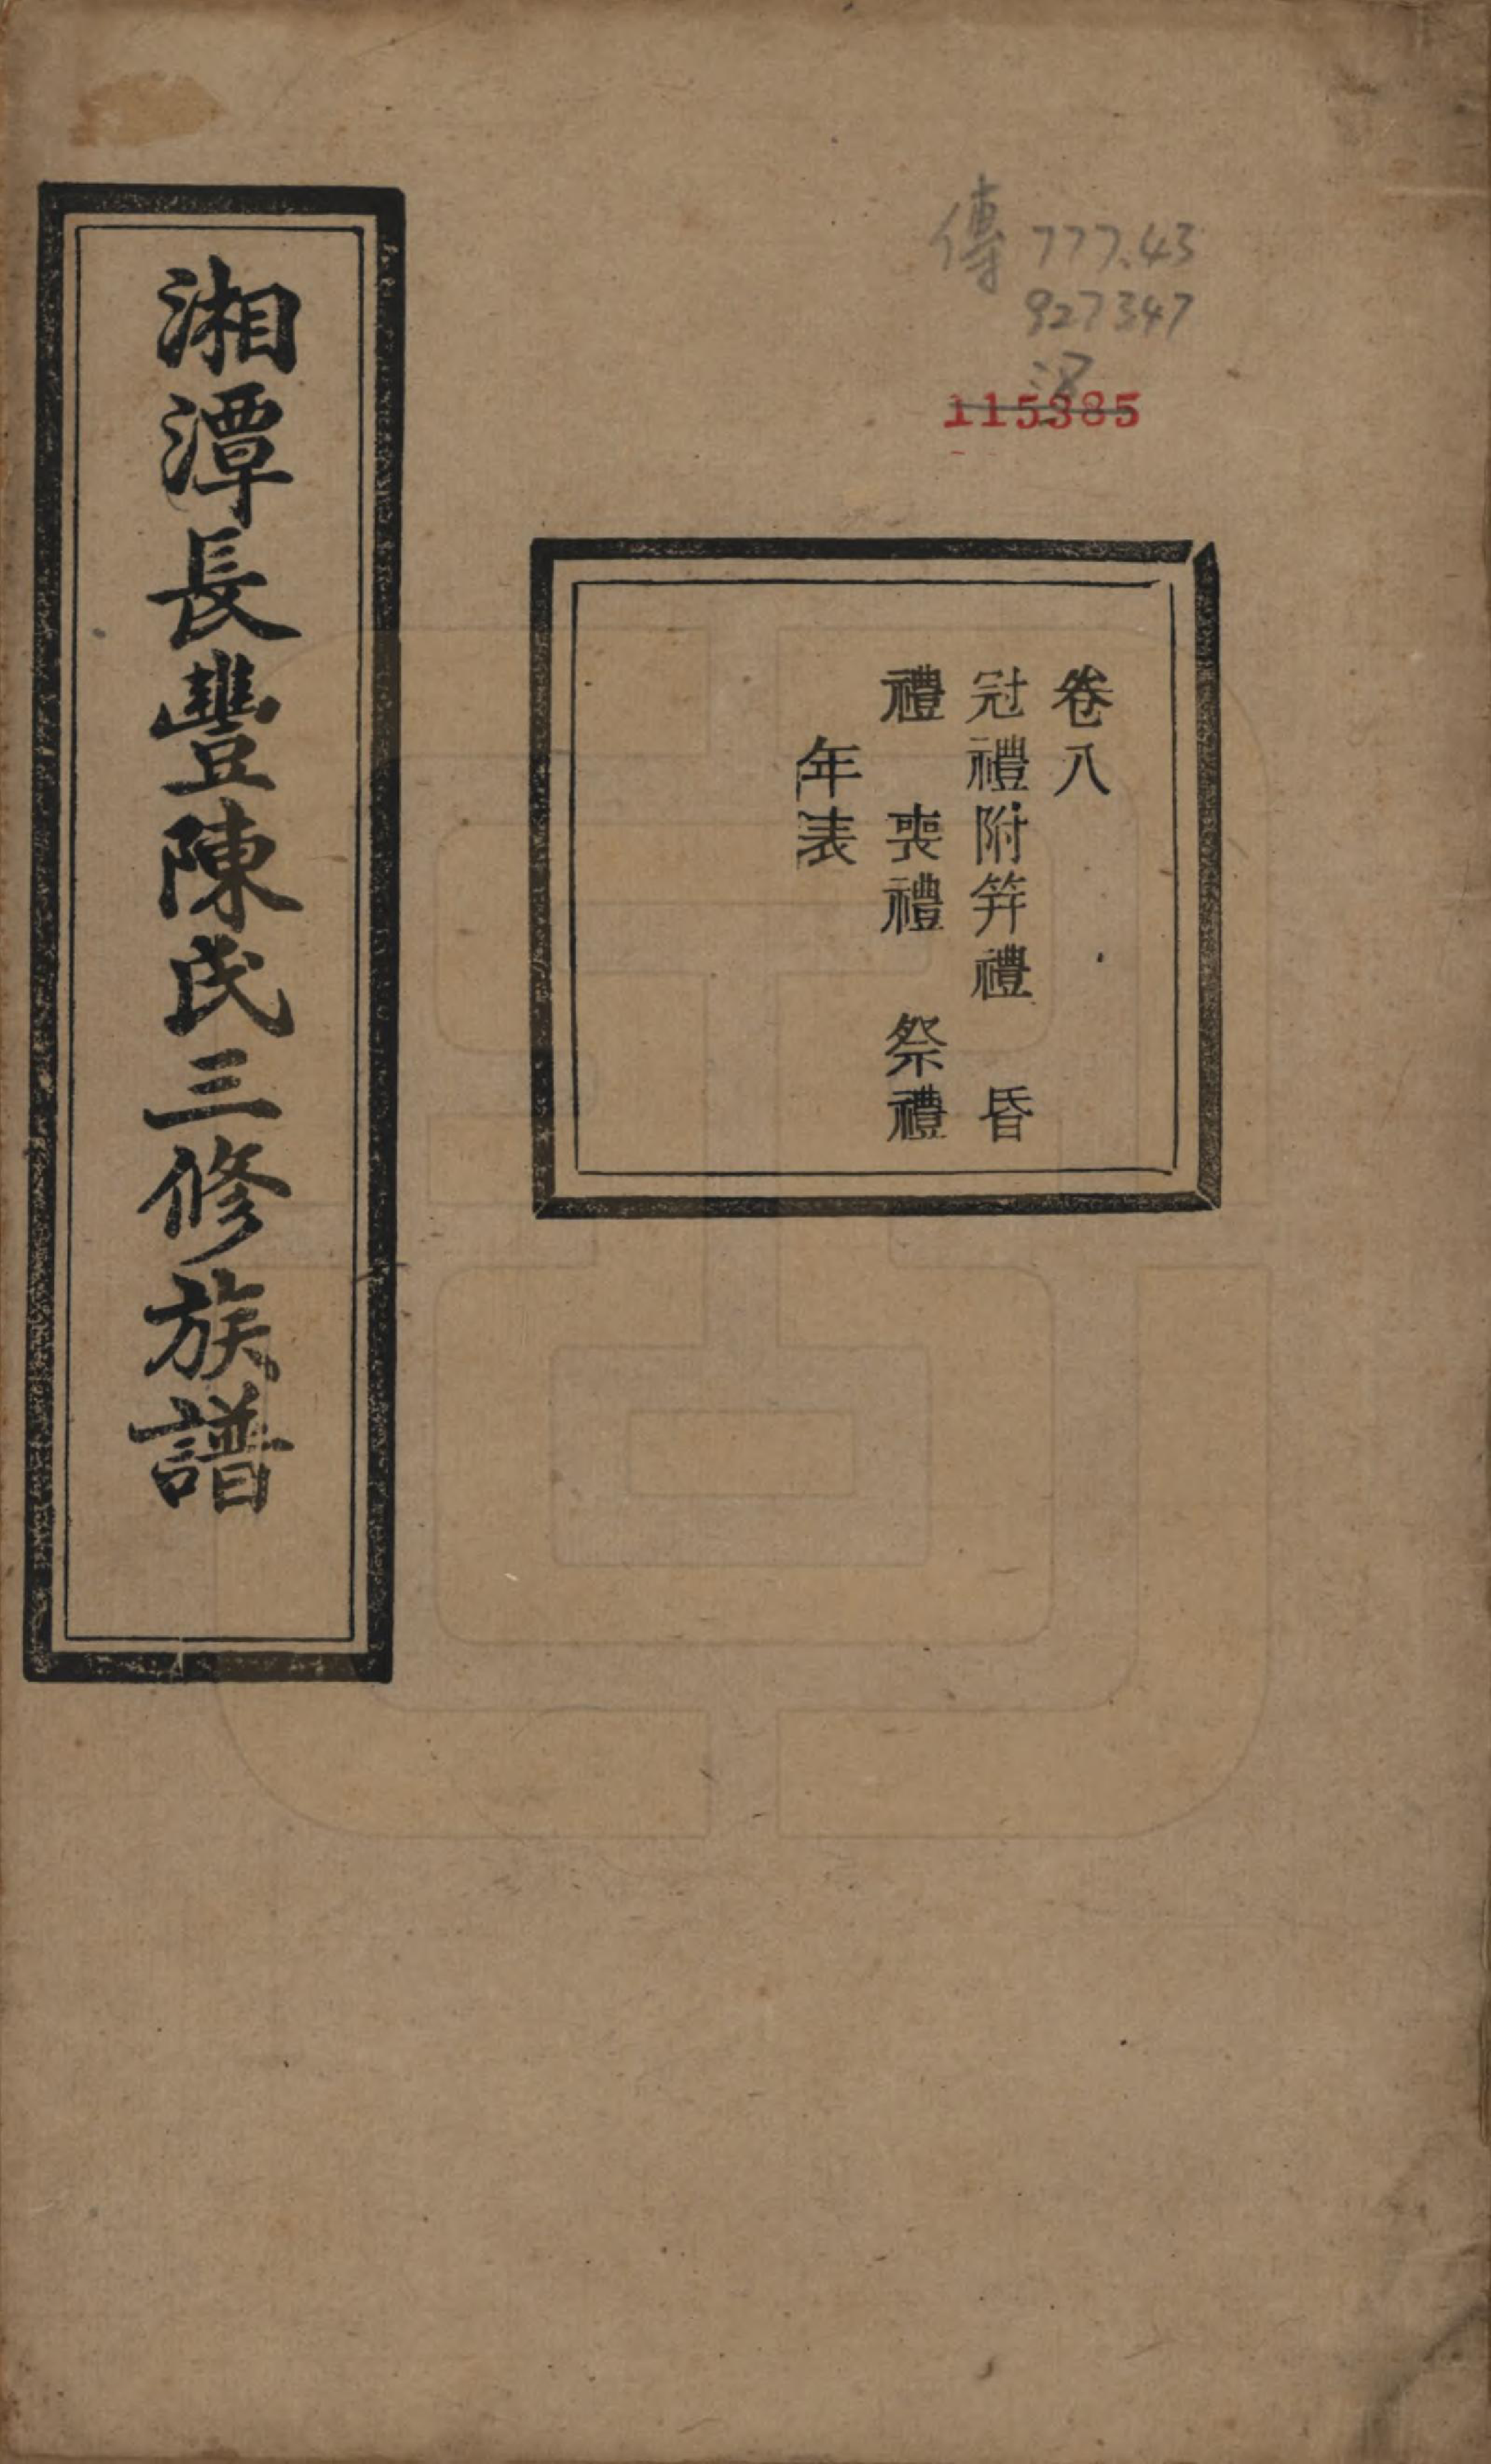 傳 777.43
927347
:8
115385
卷八
冠禮附笄禮　昏
禮　喪禮　祭禮
年表
湘潭長豐陳氏三修族譜